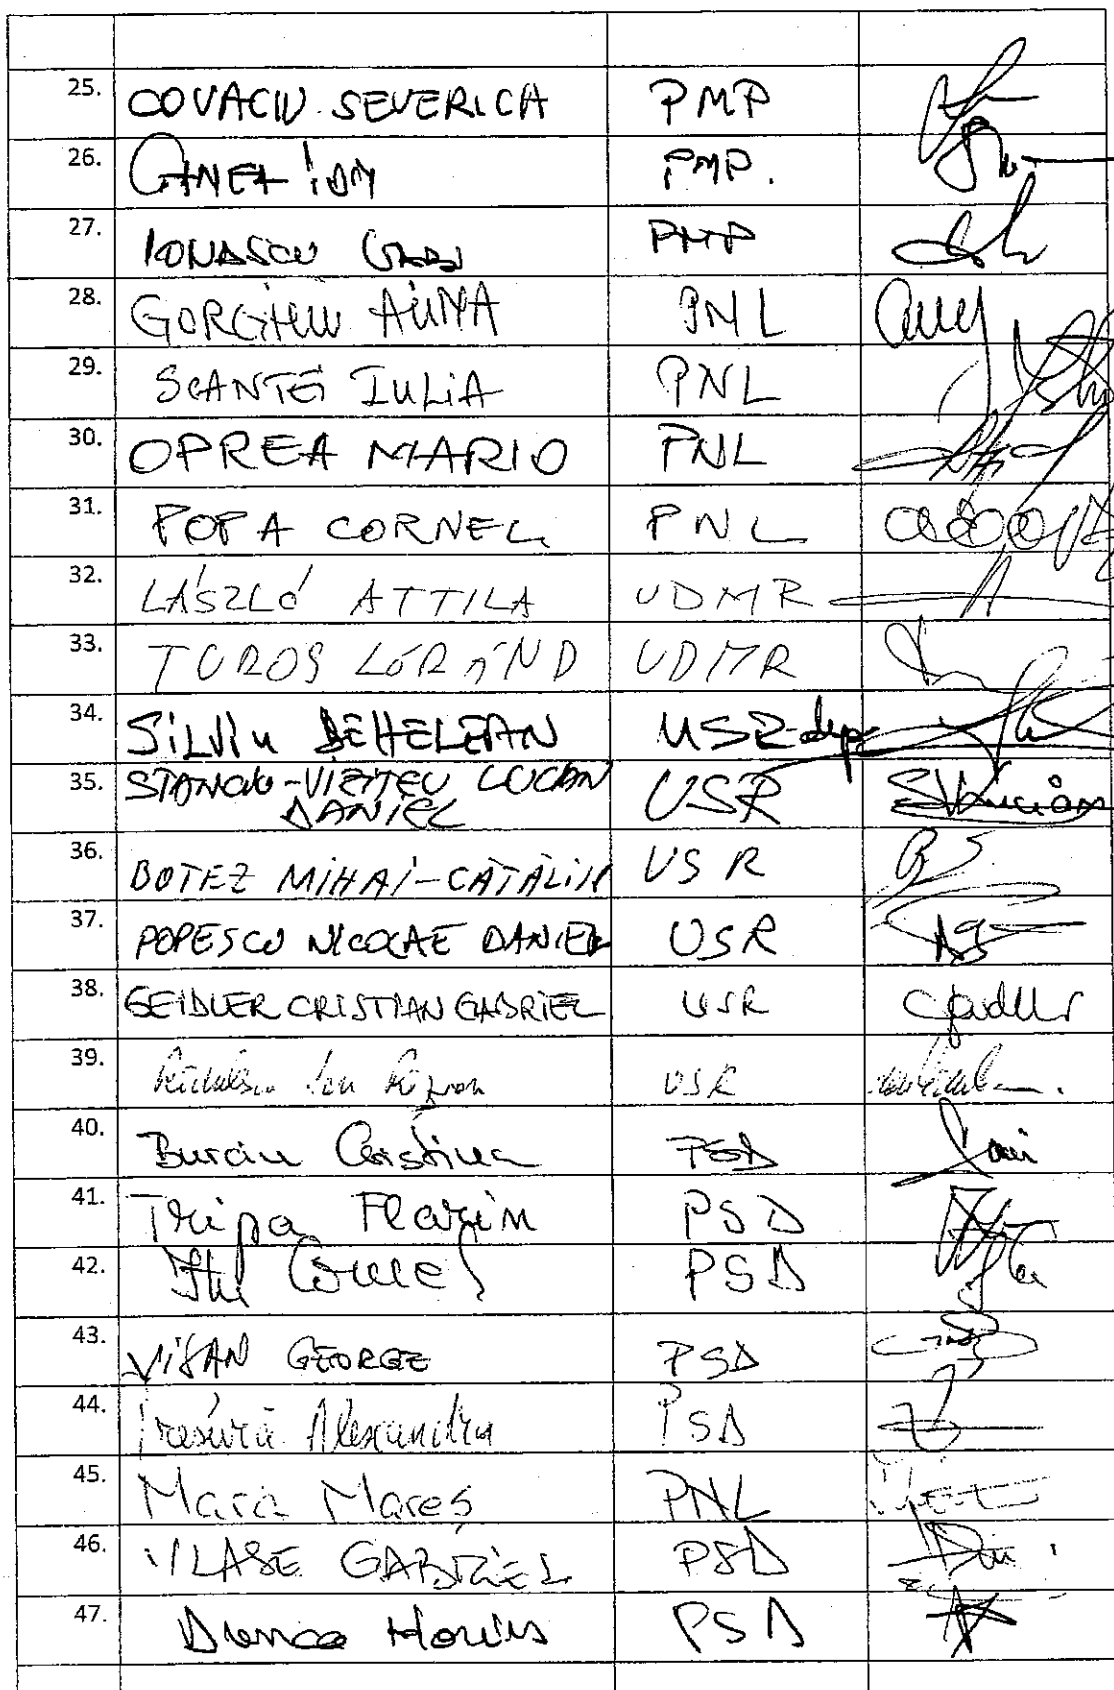 25. COVACIU SEVERICA PMP
26. PMP.
27. IONASCU GABI PMP
28. GORGHIU ALINA PNL
29. SCANTEI IULIA PNL
30. OPREA MARIO PNL
31. POPA CORNEL PNL
32. LÁSZLÓ ATTILA UDMR
33. TUROS LÓRÁND UDMR
34. SILVIU DEHELEAN USR-dep
35. STANCIU-VIZITEU LUCIAN USR
DANIEL
36. BOTEZ MIHAI-CĂTĂLIN USR
37. POPESCU NICOLAE DANIEL USR
38. SEIDLER CRISTIAN GABRIEL USR
39. USR
40. Burciu Cristina PSD
41. Tripa Florin PSD
42. Cornel PSD
43. VIȘAN GEORGE PSD
44. Presură Alexandra PSD
45. Mara Mareș PNL
46. VLASE GABRIEL PSD
47. PSD